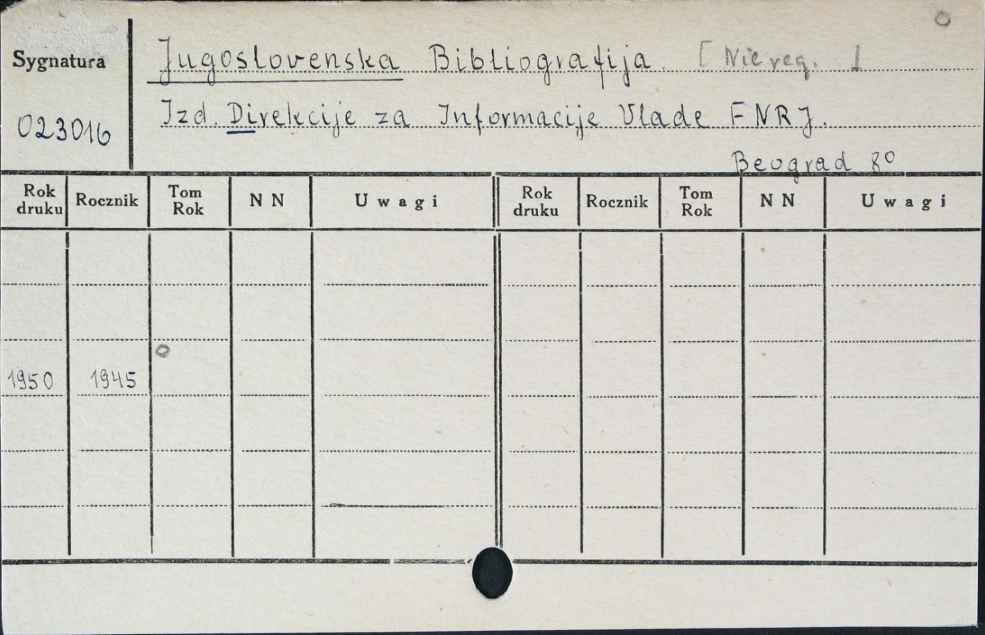 Sygnatura
023016
Jugoslovenska Bibliografija. [Niereg.]
Izd. Direkcije za Informacije Vlade FNRJ.
Beograd 8°
Rok druku Rocznik Tom Rok NN Uwagi Rok druku Rocznik Tom Rok NN Uwagi
1950 1945